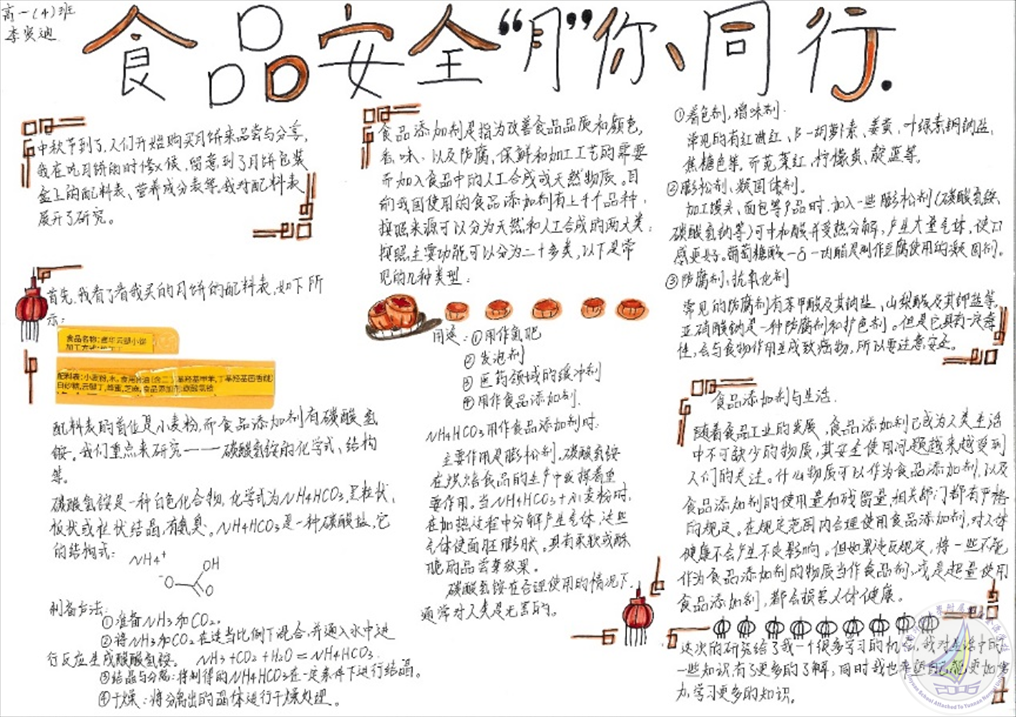 高一(4)班
李奕迪
食品安全“月”你、同行.
中秋节到了,人们开始购买月饼来品尝与分享,
我在吃月饼的时候,留意到了月饼包装
盒上的配料表、营养成分表等.我对配料表
展开了研究。
首先,我看了看我买的月饼的配料表,如下所
示:
配料表的首位是小麦粉,而食品添加剂有碳酸氢
铵。我们重点来研究——碳酸氢铵的化学式、结构
等。
碳酸氢铵是一种白色化合物,化学式为NH4HCO3,呈粒状,
板状或柱状结晶,有氨臭。NH4HCO3是一种碳酸盐,它
的结构式:
NH4+
-O OH
O
制备方法:
①准备NH3和CO2。
②将NH3和CO2在适当比例下混合,并通入水中进
行反应生成碳酸氢铵。 NH3+CO2+H2O=NH4HCO3.
③结晶与分离:将制得的NH4HCO3在一定条件下进行结晶。
④干燥:将分离出的晶体进行干燥处理。
食品添加剂是指为改善食品品质和颜色,
香、味、以及防腐、保鲜和加工工艺的需要
而加入食品中的人工合成或天然物质。目
前我国使用的食品添加剂有上千个品种,
按照来源可以分为天然和人工合成的两大类;
按照主要功能可以分为二十多类,以下是常
见的几种类型:
用途:①用作氮肥
②发泡剂
③医药领域的缓冲剂
④用作食品添加剂.
NH4HCO3用作食品添加剂时.
主要作用是膨松剂。碳酸氢铵
在烘焙食品的生产中发挥着重
要作用。当NH4HCO3+小麦粉时,
在加热过程中分解产生气体,这些
气体使面胚膨胀。具有柔软或酥
脆的品尝等效果。
碳酸氢铵在合理使用的情况下.
通常对人类是无害的。
①着色剂,增味剂.
常见的有红曲红、β-胡萝素、姜黄、叶绿素铜钠盐,
焦糖色等。而苋菜红,柠檬黄、靛蓝等。
②膨松剂、凝固体剂。
加工馒头、面包等产品时,加入一些膨松剂(碳酸氢铵、
碳酸氢钠等)可中和酸并受热分解,产生大量气体,使口
感更好。葡萄糖酸-δ-内酯是制作豆腐使用的凝固剂。
③防腐剂,抗氧化剂
常见的防腐剂有苯甲酸及其钠盐、山梨酸及其钾盐等。
亚硝酸钠是一种防腐剂和护色剂。但是它具有一定毒
性,会与食物作用生成致癌物,所以要注意安全。
食品添加剂与生活.
随着食品工业的发展,食品添加剂已成为人类生活
中不可缺少的物质,其安全使用问题越来越受到
人们的关注。什么物质可以作为食品添加剂,以及
食品添加剂的使用量和残留量,相关部门都有严格
的规定。在规定范围内合理使用食品添加剂,对人体
健康不会产生不良影响。但如果违反规定,将一些不能
作为食品添加剂的物质当作食品剂,或是超量使用
食品添加剂,都会损害人体健康。
这次的研究给了我一个很多学习的机会,我对生活中的
一些知识有了更多的了解,同时我也
力,学习更多的知识。